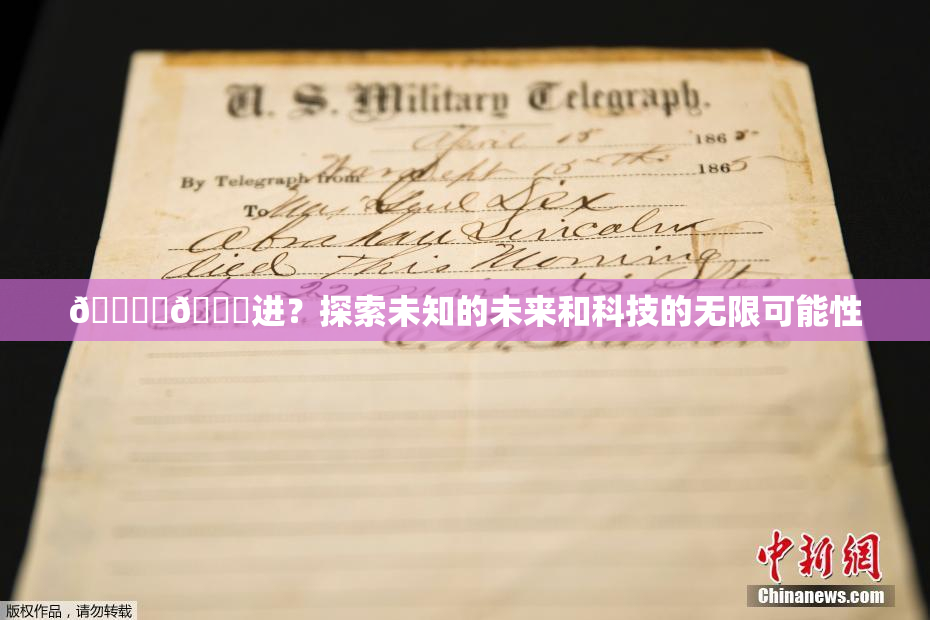 U. S. Military Telegraph.
April 15 1865
By Telegraph from War Dept 15th 1865
To Maj Genl Dix
Abraham Lincoln
died This Morning
at 22 minutes after
ð ð 进？探索未知的未来和科技的无限可能性
E. M. Stanton
中新网
Chinanews.com
版权作品，请勿转载